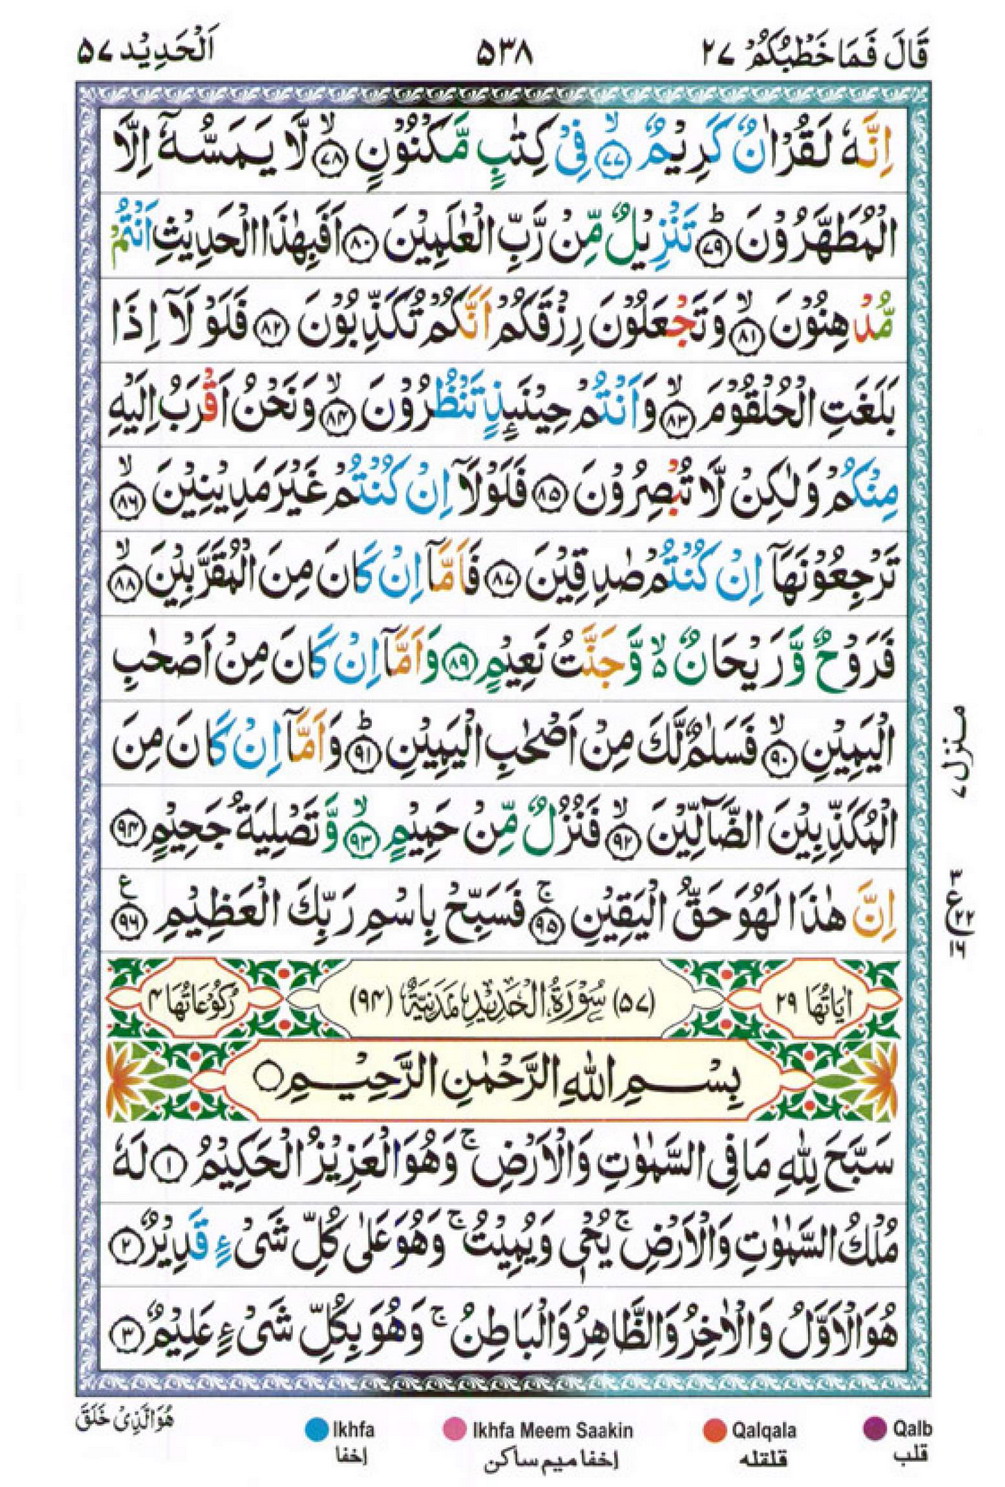 قَالَ فَمَا خَطْبُكُمْ ۲۷ ۵۳۸ اَلْحَدِيْد ۵۷
اِنَّهٗ لَقُرْاٰنٌ كَرِيْمٌ ۙ﴿۷۷﴾ فِيْ كِتٰبٍ مَّكْنُوْنٍ ۙ﴿۷۸﴾ لَّا يَمَسُّهٗۤ اِلَّا
الْمُطَهَّرُوْنَ ؕ﴿۷۹﴾ تَنْزِيْلٌ مِّنْ رَّبِّ الْعٰلَمِيْنَ ﴿۸۰﴾ اَفَبِهٰذَا الْحَدِيْثِ اَنْتُمْ
مُّدْهِنُوْنَ ۙ﴿۸۱﴾ وَتَجْعَلُوْنَ رِزْقَكُمْ اَنَّكُمْ تُكَذِّبُوْنَ ﴿۸۲﴾ فَلَوْ لَاۤ اِذَا
بَلَغَتِ الْحُلْقُوْمَ ۙ﴿۸۳﴾ وَاَنْتُمْ حِيْنَئِذٍ تَنْظُرُوْنَ ۙ﴿۸۴﴾ وَنَحْنُ اَقْرَبُ اِلَيْهِ
مِنْكُمْ وَلٰكِنْ لَّا تُبْصِرُوْنَ ﴿۸۵﴾ فَلَوْلَاۤ اِنْ كُنْتُمْ غَيْرَ مَدِيْنِيْنَ ۙ﴿۸۶﴾
تَرْجِعُوْنَهَاۤ اِنْ كُنْتُمْ صٰدِقِيْنَ ﴿۸۷﴾ فَاَمَّاۤ اِنْ كَانَ مِنَ الْمُقَرَّبِيْنَ ۙ﴿۸۸﴾
فَرَوْحٌ وَّرَيْحَانٌ ۙ۬ وَّجَنَّتُ نَعِيْمٍ ﴿۸۹﴾ وَاَمَّاۤ اِنْ كَانَ مِنْ اَصْحٰبِ
الْيَمِيْنِ ۙ﴿۹۰﴾ فَسَلٰمٌ لَّكَ مِنْ اَصْحٰبِ الْيَمِيْنِ ؕ﴿۹۱﴾ وَاَمَّاۤ اِنْ كَانَ مِنَ
الْمُكَذِّبِيْنَ الضَّآلِّيْنَ ۙ﴿۹۲﴾ فَنُزُلٌ مِّنْ حَمِيْمٍ ۙ﴿۹۳﴾ وَّتَصْلِيَةُ جَحِيْمٍ ﴿۹۴﴾
اِنَّ هٰذَا لَهُوَ حَقُّ الْيَقِيْنِ ۚ﴿۹۵﴾ فَسَبِّحْ بِاسْمِ رَبِّكَ الْعَظِيْمِ ﴿۹۶﴾ ع
منزل ۷
۳ ع ۲۲ ۱۶
اٰيَاتُهَا ۲۹ (۵۷) سُوْرَةُ الْحَدِيْدِ مَدَنِيَّةٌ (۹۴) رُكُوْعَاتُهَا ۴
بِسْمِ اللّٰهِ الرَّحْمٰنِ الرَّحِيْمِ
سَبَّحَ لِلّٰهِ مَا فِي السَّمٰوٰتِ وَالْاَرْضِ ۚ وَهُوَ الْعَزِيْزُ الْحَكِيْمُ ﴿۱﴾ لَهٗ
مُلْكُ السَّمٰوٰتِ وَالْاَرْضِ ۚ يُحْيٖ وَيُمِيْتُ ۚ وَهُوَ عَلٰى كُلِّ شَيْءٍ قَدِيْرٌ ﴿۲﴾
هُوَ الْاَوَّلُ وَالْاٰخِرُ وَالظَّاهِرُ وَالْبَاطِنُ ۚ وَهُوَ بِكُلِّ شَيْءٍ عَلِيْمٌ ﴿۳﴾
هُوَ الَّذِيْ خَلَقَ
Ikhfa Ikhfa Meem Saakin Qalqala Qalb
اخفا اخفا میم ساکن قلقله قلب